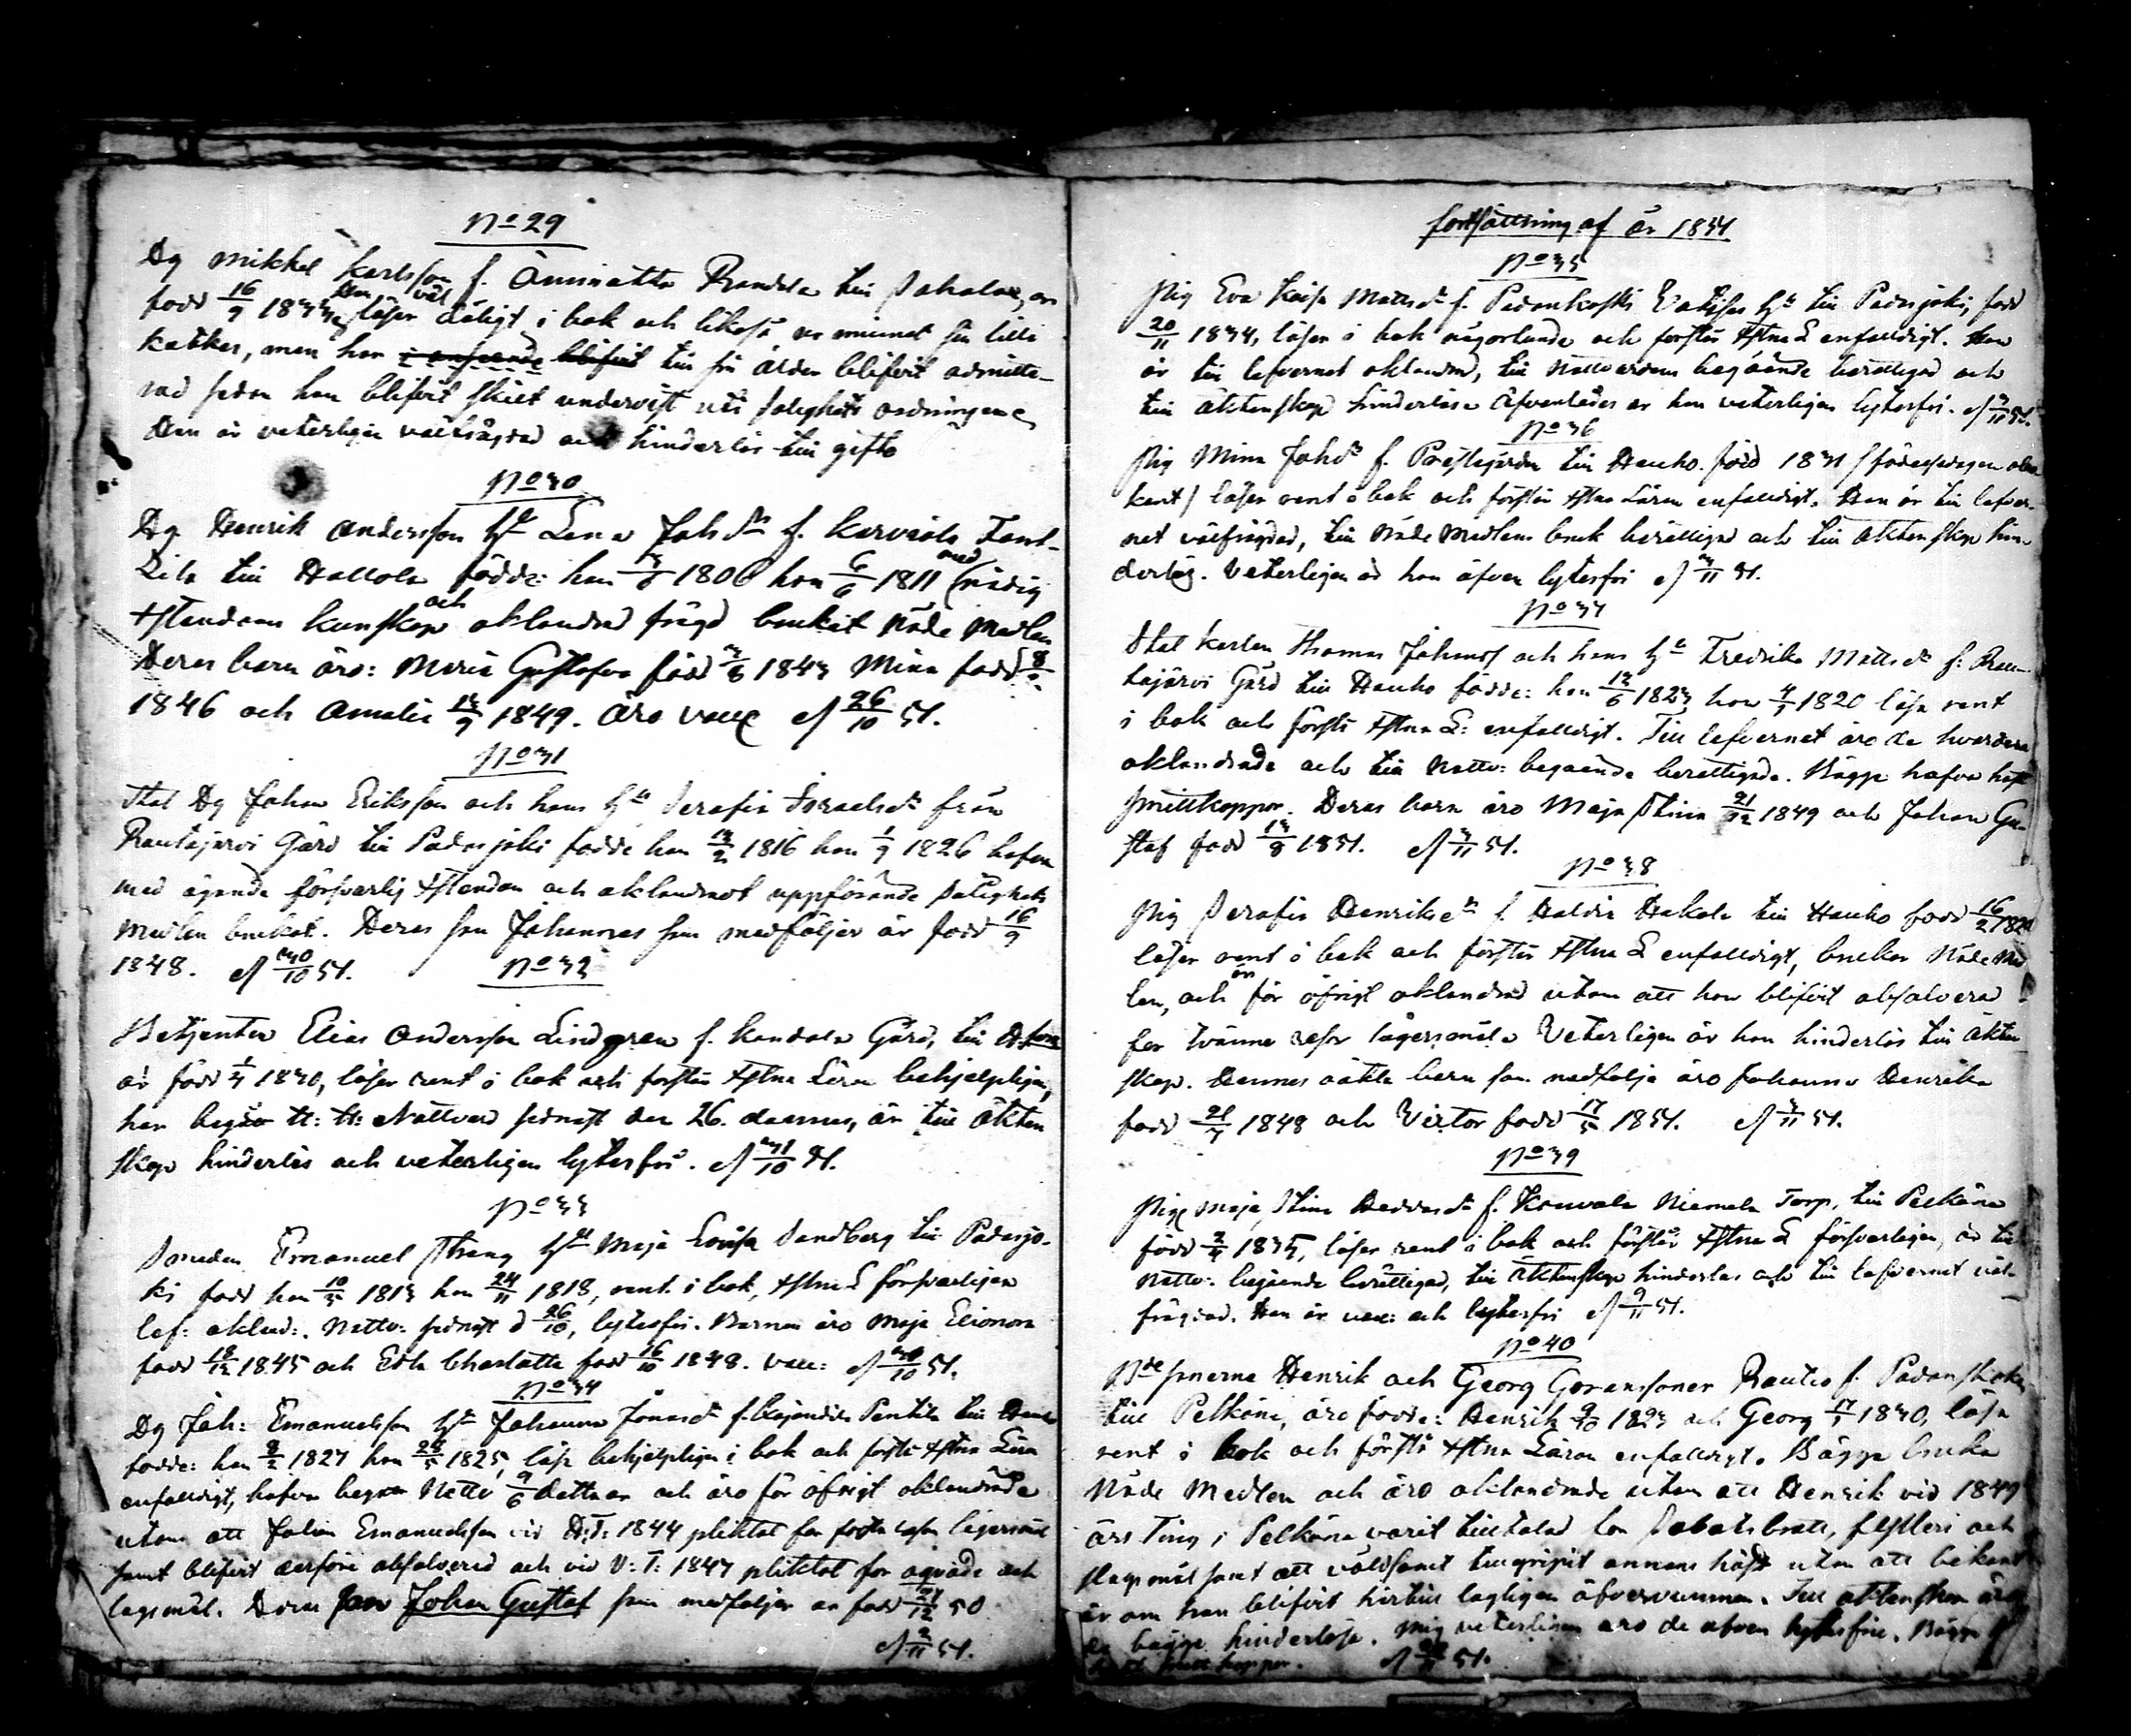 No 29
Dg Mikkel Karlsson f. Anninatta Randela till Sahalax, är
född 16/9 1833, Han läser väl dåligt i bok och likaså ur minnet sin lilla
kattkes, men har i anseende blifvit till sin ålder blifvit admitte-
rad sedan han blifvit skilt undervist uti salighets ordningen
Han är veterligen välfrägdad och hinderlös till gifte
No 30
Dg Henrik Andersson h. Lena Joh.dr f.
Lila till Hattola födde: han 1806 hon 6/6 1811 med nödig
Xstendoms kunskap och oklandrad frägd brukat Nåde Medlen
Deras barn äro: Maria Gustafva född 3/8 1843 Mina född
1846 och Amalia 13/9 1849. Äro vacc af 26/10 51.
No 31
Stat Dg Johan Eriksson och hans h. Serafia Israels dr från
Rautajervi Gård till Padasjoki födde han 13/2 1816 hon 1/9 1826 hafva
med ägande försvarlig Xstendom och oklandradt uppförande Salighets
medlen brukat. Deras son Johannes som medföljer är född 16/9
1848. af 30/10 51. No 32
Betjenten Elias Andersson Lindgren f. Kandala Gård, till
är född 1830, läser rent i bok och förstår Xstna Läran behjelpligen,
har begått H: H: Nattvard sednast den 26. dennes, är till äkten
skap hinderlös och veterligen lytesfri. af 31/10 51.
No 33
Smeden Emanuel Strang h. Maja Lovisa Sandberg till Padasjo-
ki född han 10/5 1813 hon 24/11 1818, rent i bok, Xstna L försvarligen
lef: oklad:. Nattv: sednast d 26/10, lytesfri. Barnen äro Maja Elionora
född 18/12 1845 och Edla Charlotta född 16/10 1848. vacc: af 30/10 51.
No 34
Dg Joh: Emanuelsson h. Johanna Jonasdr f. Pentila till
födde: han 8/2 1827 hon 1825, läsa behjelpligen i bok och förstå Xstna Läran
enfalldigt, hafva begått Nattv 9/6 detta år och äro för öfrigt oklandrade
utom att Johan Emanuelsson vid H:T: 1844 pliktat för första resan lägersmål
samt blifvit derföre absolverad och vid V: T: 1847 pliktat för oqväde och
lagsmål. Deras Son Johan Gustaf som medföljer är född 50
af 2/11 51.
fortsättning af år 1851
No 35
Pig Eva Kaisa Matts dr f. Padankoski till Padasjoki, född
20/11 1834, läser i bok någorlunda och förstår Xstna L enfalldigt. Hon
är till lefvernet oklandrad, till Nattvardens begående berättigad och
till äktenskap hinderlös. Äfvenledes är hon veterligen lytesfri. af 3/11 51.
No 36
Pig Mina Joh dr f. Prestegården till Hauho. född 1831 (födelsedagen obe-
kant) läser rent i bok och förstår Xstna Läran enfalldigt. Hon är till lefver-
net välfrägdad, till Nåde Medlens bruk berättigad och till äktenskap hin-
derlös. Veterligen är hon äfven lytesfri af 3/11 51.
No 37
Stat Karlen Thomas Johanss och hans h. Fredrika Matts dr f. Rau-
tajärvi Gård till Hauho födde: han 12/6 1823 hon 1820 läsa rent
i bok och förstå Xstna L: enfalldigt. Till lefvernet äro de hvardera
oklandrade och till Nattv: begående berättigade. Bägge hafva haft
smittkoppor. Deras barn äro Maja Stina 21/12 1849 och Johan Gu-
staf född 13/8 1851. af 3/11 51.
No 38
Pig Serafia Henriks dr f. Hakola till Hauho född 16/2
läser rent i bok och förstår Xstna L enfalldigt, brukar Nåde Med
len, och är för öfrigt oklandrad utom att hon blifvit absolverad
för tvänne resor lägersmål. Veterligen är hon hinderlös till äkten
skap. Hennes oäkta barn som medfölja äro Johanna Henrika
född 1848 och Victor född 17/5 1851. af 3/11 51.
No 39
Pig Maja Stina f. Kouvala Niemela Torp, till Pelkäne
född 1835, läser rent i bok och förstår Xstna L försvarligen, är till
Nattv: begående berättigad, till äktenskap hinderlös och till lefvernet väl-
frägdad. Hon är vacc: och lytesfri af 9/11 51.
No 40
Bde Sönerne Henrik och Georg Göranssoner Rautio f. Padankoski
till Pelkäne, äro födde: Henrik 9/10 1823 och Georg 1830, läsa
rent i bok och förstå Xstna Läran enfalldigt. Bägge bruka
Nåde Medlen och äro oklandrade utom att Henrik vid 1849
års Ting i Pelkäne varit tilltalad för Sabatsbrott, fylleri och
slagsmål samt att våldsamt tillgripit annans häst utan att bekant
är om han blifvit härtill lagligen öfvervunnen. Till äktenskap äro
de bägge hinderlösa. Mig veterligen äro de äfven lytesfrie. Bägge
haft smittkoppor. af 51.